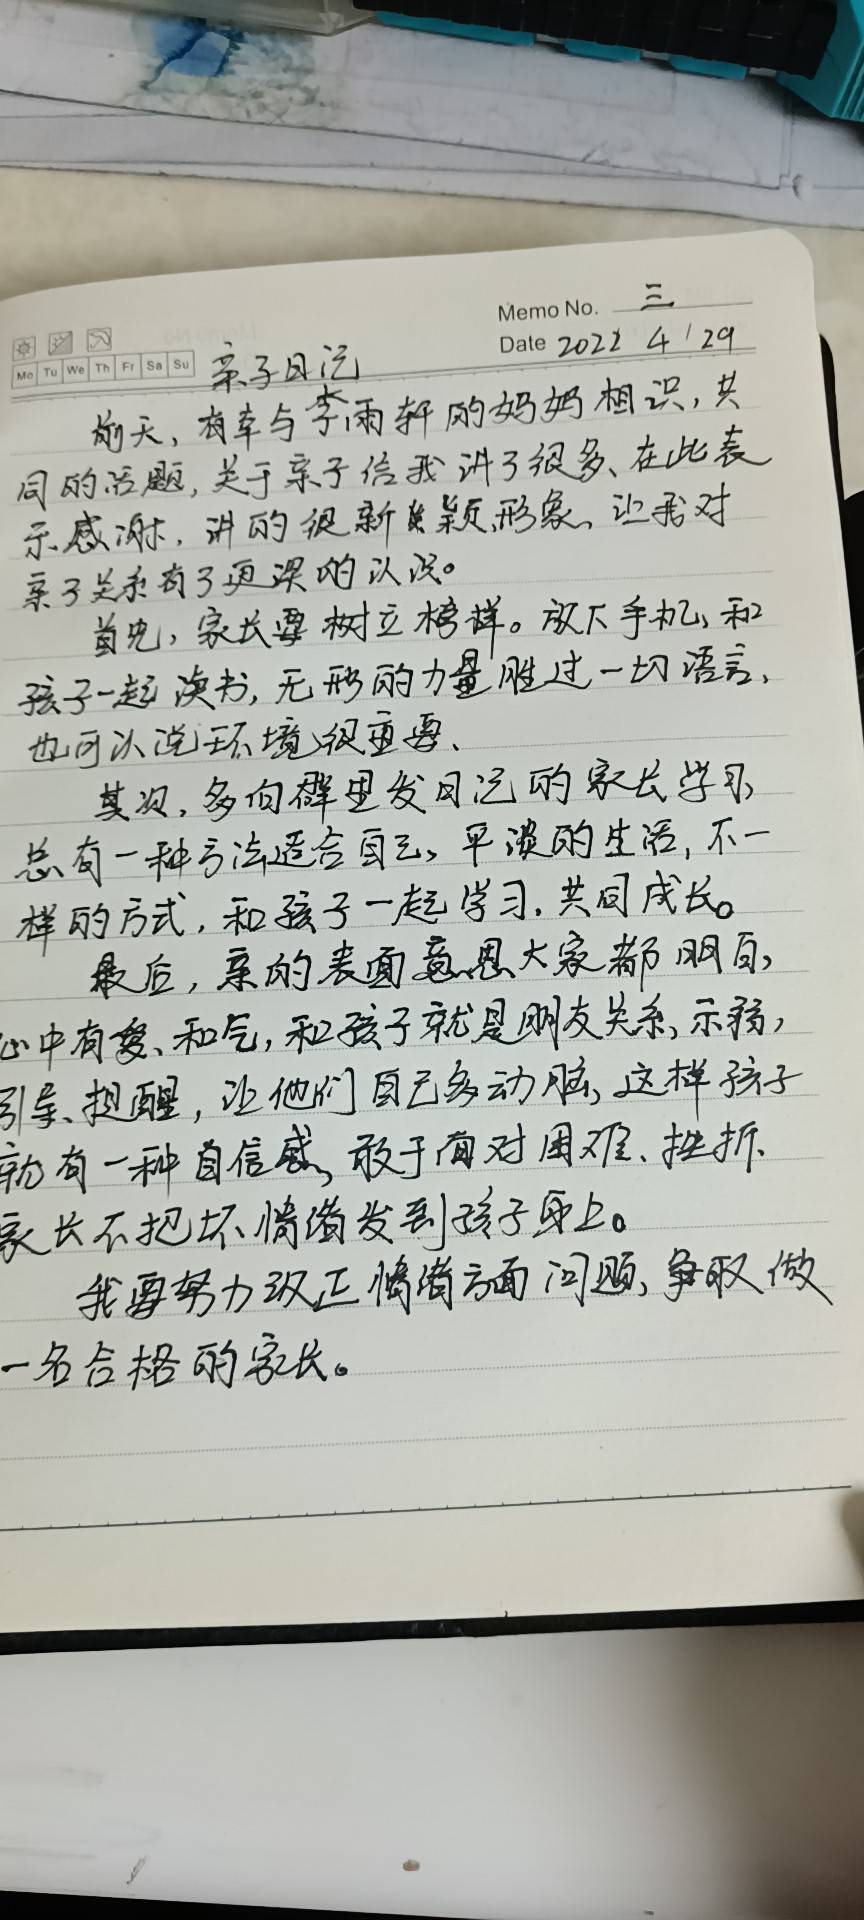 Memo No. 三
Date 2022 4/29
Mo Tu We Th Fr Sa Su
亲子日记
前天,有幸与李雨轩的妈妈相识,共
同的话题,关于亲子给我讲了很多、在此表
示感谢,讲的很新颖,形象、让我对
亲子关系有了更深的认识。
首先,家长要树立榜样。放下手机、和
孩子一起读书,无形的力量胜过一切语言,
也可以说环境很重要、
其次,多向群里发日记的家长学习,
总有一种方法适合自己、平淡的生活,不一
样的方式,和孩子一起学习,共同成长。
最后,亲的表面意思大家都明白,
心中有爱、和气,和孩子就是朋友关系,示弱,
引导、提醒,让他们自己多动脑,这样孩子
就有一种自信感,敢于面对困难、挫折、
家长不把坏情绪发到孩子身上。
我要努力改正情绪方面问题,争取做
一名合格的家长。